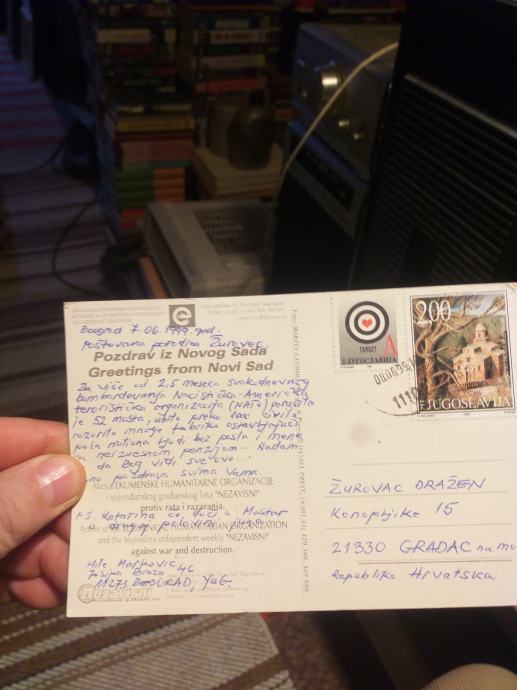 e
Beograd 7.06 1999. god.
Poštovana porodica Žurovec
Pozdrav iz Novog Sada
Greetings from Novi Sad
Za više od 2,5 meseca svakodnevnog
bombardovanja Nacističko-Američke
terorističke organizacije (NATO) porušila
je 52 mosta, ubila preko civila
razorila mnoge fabrike ostavljajući
pola miliona ljudi bez posla i mene
sa neizvesnom penzijom.. Nadam
da Bog vidi sve ovo..
pozdrava svima Vama.
EKUMENSKE HUMANITARNE ORGANIZACIJE
i vojvođanskog građanskog lista "NEZAVISNI"
protiv rata i razaranja.
P.S. Katarina će doći u Mostar
u drugoj polovini juna
HUMANITARIAN ORGANIZATION
and the Vojvodina independent weekly "NEZAVISNI"
against war and destruction.
Mile Marković
Josipa Broza 46
11271 BEOGRAD, YUG.
nezavisni
TARGET
A
ЈУГОСЛАВИЈА
1110
2.00
JUGOSLAVIJA
ŽUROVAC DRAŽEN
Konopljike 15
21330 GRADAC na mo
Republika Hrvatska